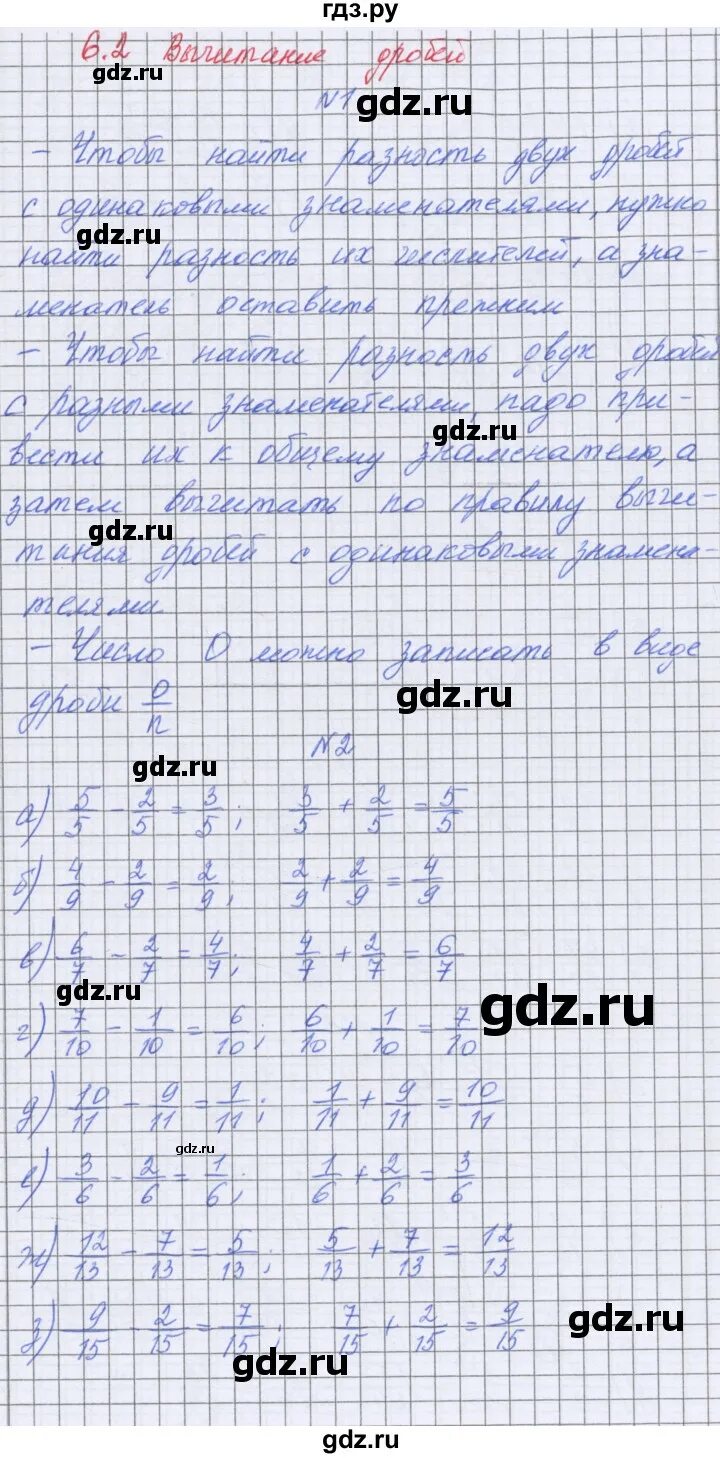 гдз.ру
6.2 Вычитание дробей
gdz.ru
№1
gdz.ru
- Чтобы найти разность двух дробей
с одинаковыми знаменателями, нужно
gdz.ru
найти разность их числителей, а зна-
менатель оставить прежним
- Чтобы найти разность двух дробей
с разными знаменателями, надо при-
gdz.ru
вести их к общему знаменателю, а
затем вычитать по правилу вычи-
gdz.ru
тания дробей с одинаковыми знамена-
телями
- Число 0 можно записать в виде
дроби 0/n
gdz.ru
№2
gdz.ru
а) 5/5 - 2/5 = 3/5; 3/5 + 2/5 = 5/5
б) 4/9 - 2/9 = 2/9; 2/9 + 2/9 = 4/9
в) 6/7 - 2/7 = 4/7; 4/7 + 2/7 = 6/7
gdz.ru
gdz.ru
г) 7/10 - 1/10 = 6/10; 6/10 + 1/10 = 7/10
д) 10/11 - 9/11 = 1/11; 1/11 + 9/11 = 10/11
gdz.ru
е) 3/6 - 2/6 = 1/6; 1/6 + 2/6 = 3/6
ж) 12/13 - 7/13 = 5/13; 5/13 + 7/13 = 12/13
з) 9/15 - 2/15 = 7/15; 7/15 + 2/15 = 9/15
gdz.ru
gdz.ru
gdz.ru